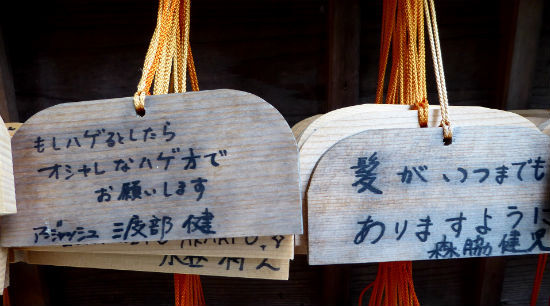 もしハゲるとしたら
オシャレなハゲ方で
お願いします
アジャッシュ 渡部 健
髪がいつまでも
ありますように
森脇 健児